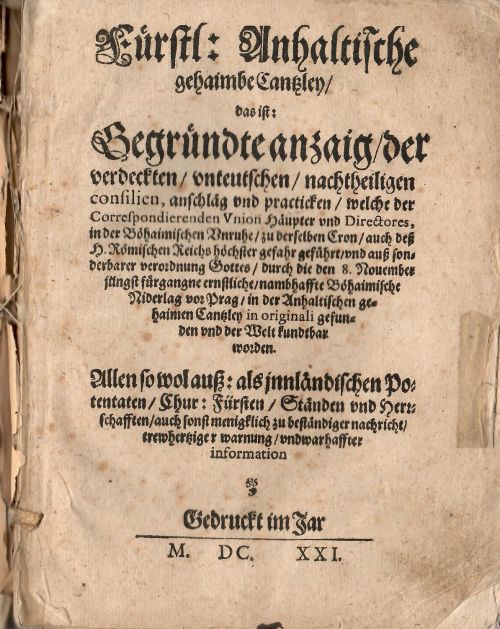 Fürstl: Anhaltische
gehaimbe Cantzley/
das ist:
Gegründte anzaig/der
verdeckten/ vnteutschen/ nachtheiligen
consilien, anschläg vnd practicken/ welche der
Correspondierenden Vnion Häupter vnd Directores,
in der Böhaimischen Vnruhe/ zu derselben Cron/ auch deß
H. Römischen Reichs höchster gefahr geführt/vnd auß son-
derbarer verordnung Gottes/ durch die den 8. Nouember
jüngst fürgangne ernstliche/nambhaffte Böhaimische
Niderlag vor Prag/ in der Anhaltischen ge-
haimen Cantzley in originali gefun-
den vnd der Welt kundtbar
worden.
Allen so wol auß: als jnnländischen Po-
tentaten/ Chur: Fürsten/ Ständen vnd Herr-
schafften/auch sonst menigklich zu beständiger nachricht/
trewhertziger warnung/ vnd warhaffter
information
Gedruckt im Jar
M. DC. XXI.